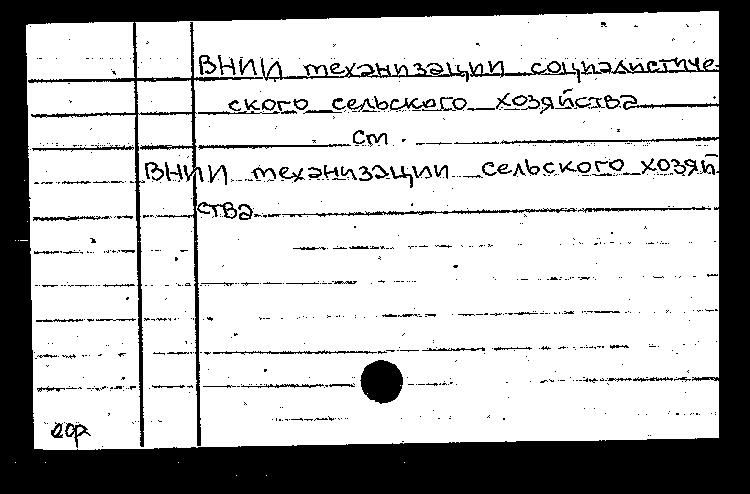 ВНИИ механизации социалистиче-
ского сельского хозяйства
см.
ВНИИ механизации сельского хозяй
ства